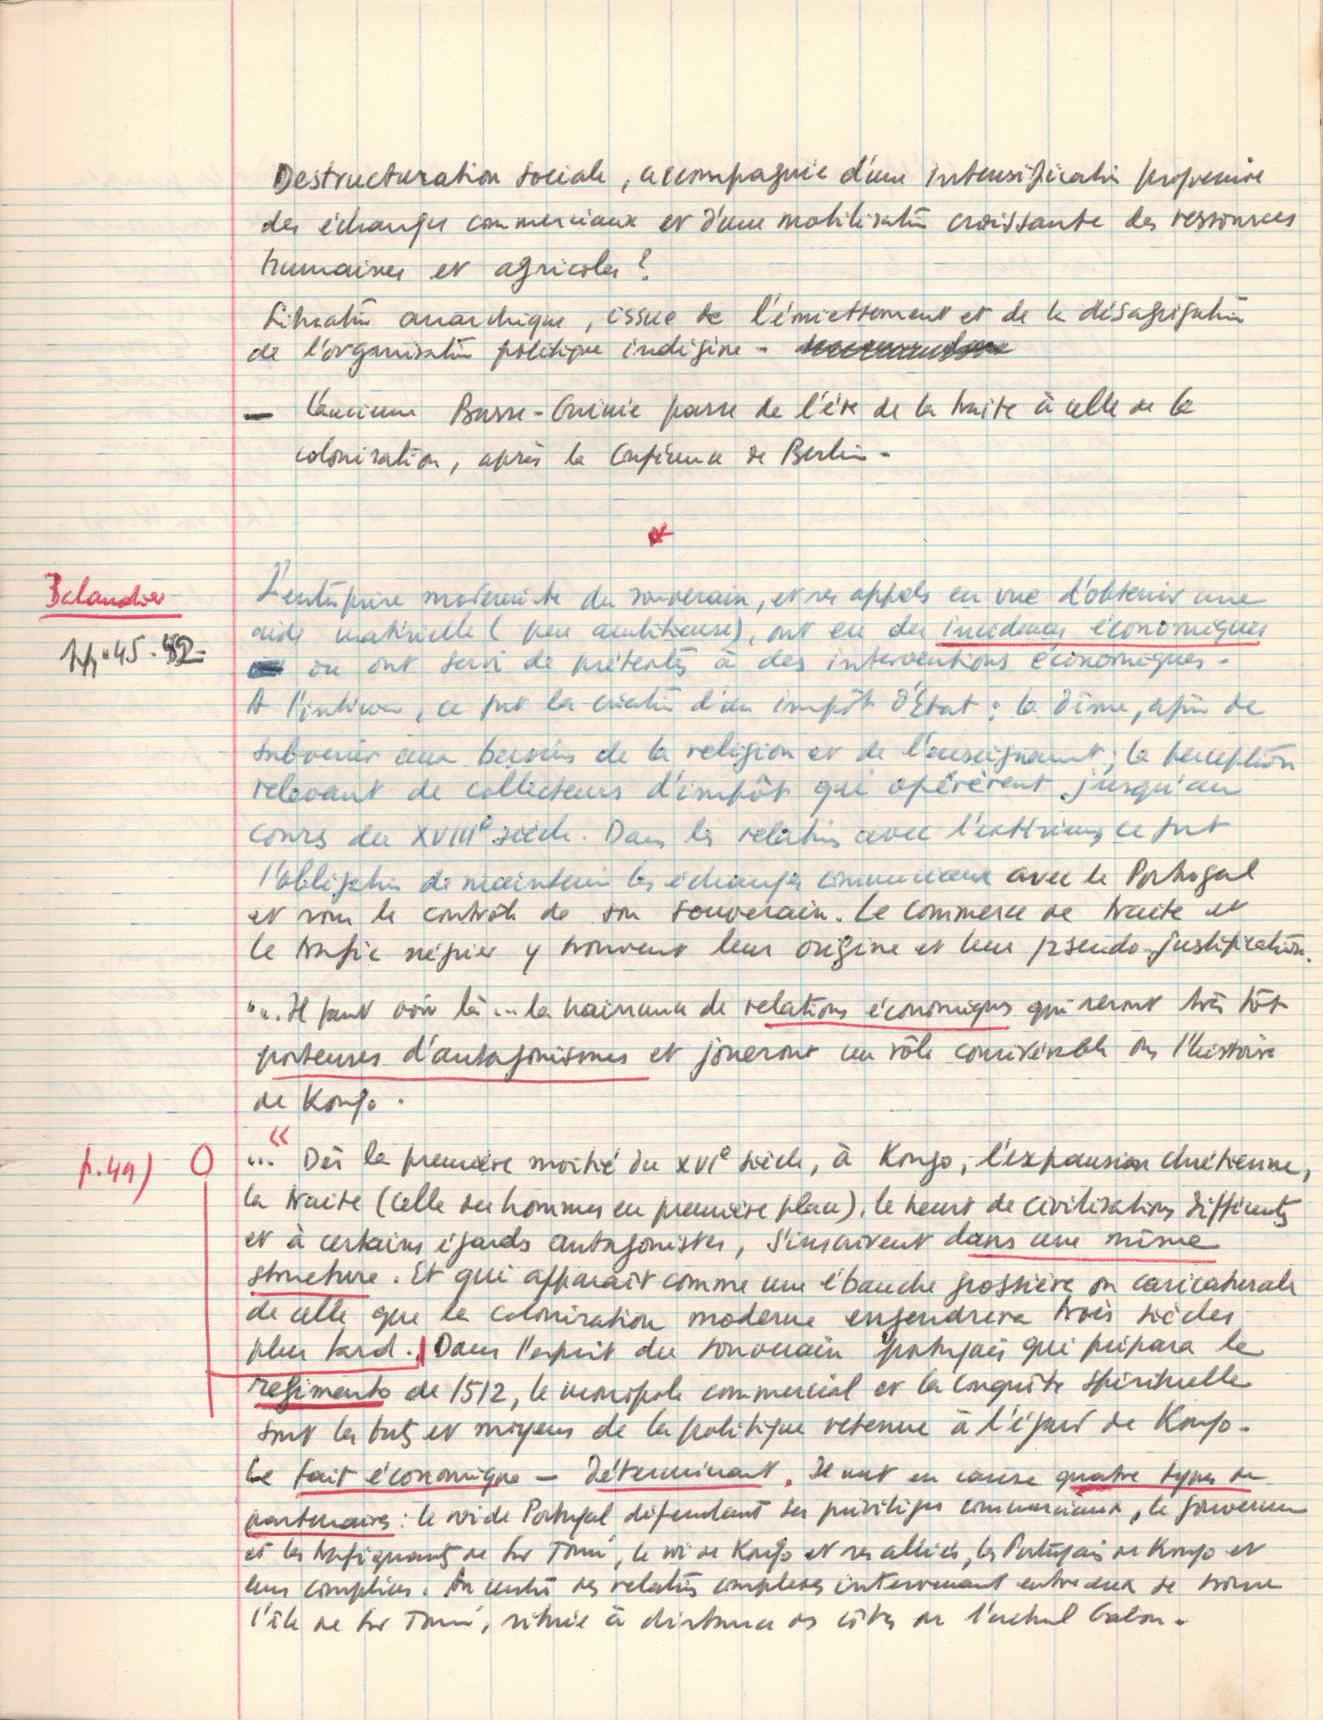 Destructuration sociale, accompagnée d'une intensification progressive
des échanges commerciaux et d'une mobilisation croissante des ressources
humaines et agricoles ?
anarchique, issue de l'émiettement et de la désagrégation
de l'organisation politique indigène -
- L'ancienne Basse-Guinée passe de l'ère de la traite à celle de la
colonisation, après la Conférence de Berlin -
Balandier
pp. 45-52-
L'entreprise moderniste du souverain, et ses appels en vue d'obtenir une
aide matérielle (peu ambitieuse), ont eu des incidences économiques
ou ont servi de prétextes à des interventions économiques -
A l'intérieur, ce fut la création d'un impôt d'État : la dîme, afin de
subvenir aux besoins de la religion et de l'enseignement ; la perception
relevant de collecteurs d'impôts qui opérèrent jusqu'au
cours du XVIIIe siècle. Dans les relations avec l'extérieur, ce fut
l'obligation de maintenir les échanges commerciaux avec le Portugal
et sous le contrôle de son souverain. Le commerce de traite et
le trafic négrier y trouvent leur origine et leur pseudo-justification.
"... Il faut voir là ... la naissance de relations économiques qui seront très tôt
porteuses d'antagonismes et joueront un rôle considérable ds l'histoire
de Kongo.
p. 49)
..." Dès la première moitié du XVIe siècle, à Kongo, l'expansion chrétienne,
la traite (celle des hommes en première place), le heurt de civilisations différentes
et à certains égards antagonistes, s'inscrivent dans une même
structure. Et qui apparaît comme une ébauche grossière ou caricaturale
de celle que la colonisation moderne engendrera trois siècles
plus tard. Dans l'esprit du souverain portugais qui prépara le
regimento de 1512, le monopole commercial et la conquête spirituelle
sont les buts et moyens de la politique retenue à l'égard de Kongo -
Le fait économique - déterminant. Il met en cause quatre types de
partenaires : le roi de Portugal défendant ses privilèges commerciaux, le gouverneur
et les trafiquants de São Tomé, le roi de Kongo et ses alliés, les Portugais de Kongo et
leurs complices. Au centre des relations complexes intervenant entre eux se trouve
l'île de São Tomé, située à distance des côtes de l'actuel Gabon -